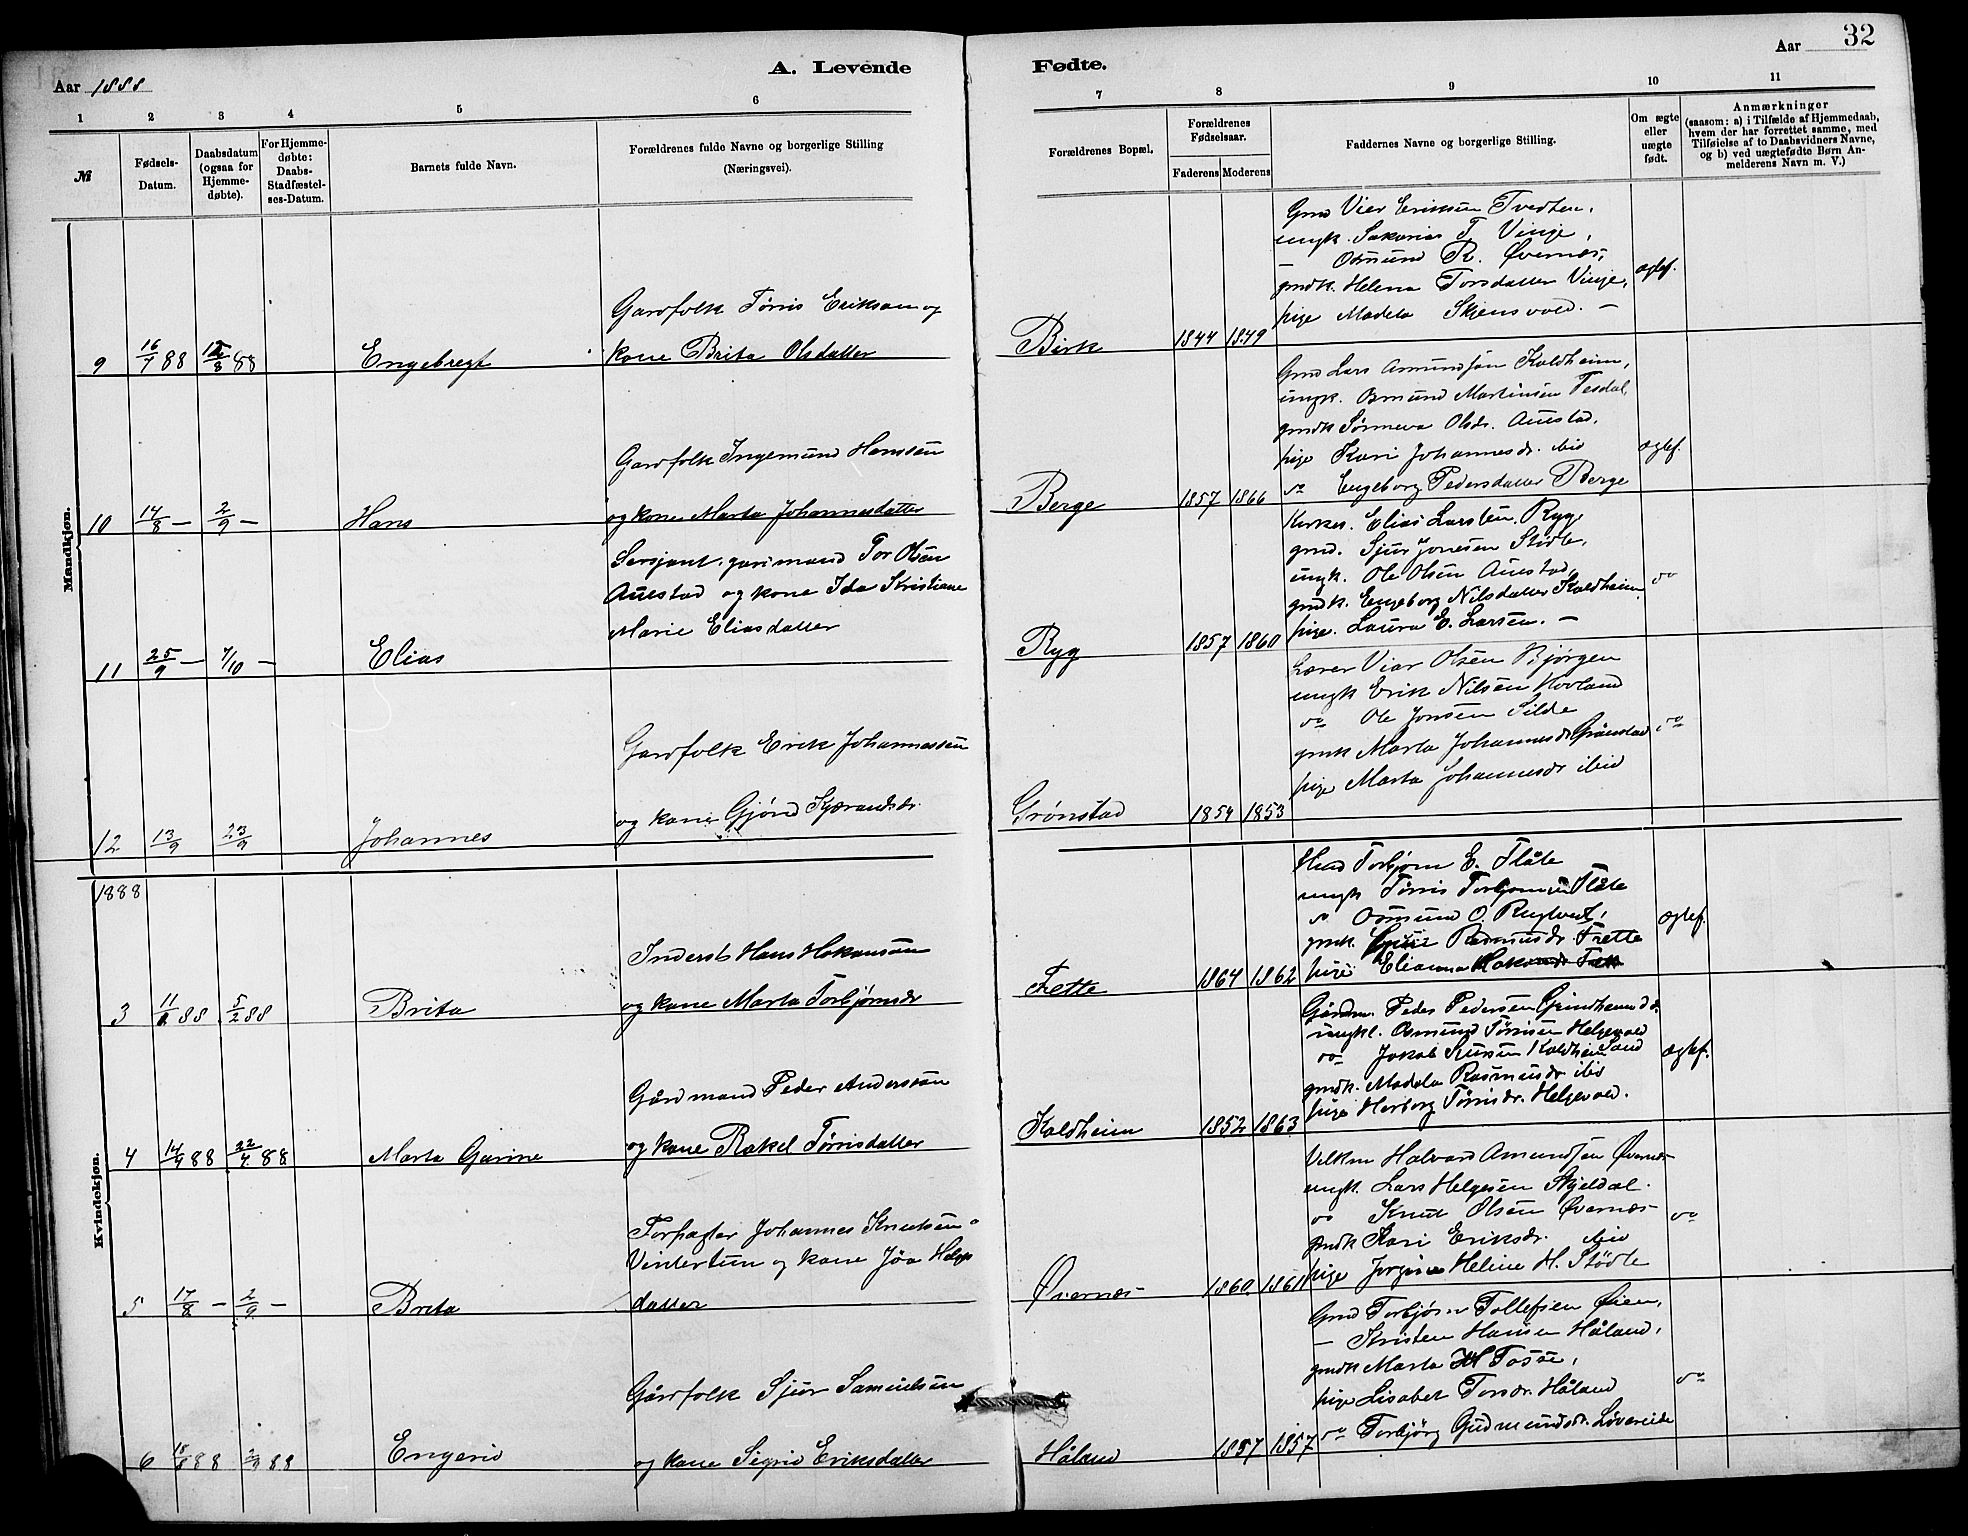 Aar 1888
A. Levende
Fødte.
Aar
32
1
2
3
4
5
6
7
8
9
10
11
№
Fødsels-
Datum.
Daabsdatum
(ogsaa for
Hjemme-
døbte).
For Hjemme-
døbte:
Daabs-
Stadfæstel-
ses-Datum.
Barnets fulde Navn.
Forældrenes fulde Navne og borgerlige Stilling
(Næringsvei).
Forældrenes Bopæl.
Forældrenes
Fødselsaar.
Faderens
Moderens
Faddernes Navne og borgerlige Stilling.
Om ægte
eller
uægte
født.
Anmærkninger
(saasom: a) i Tilfælde af Hjemmedaab,
hvem der har forrettet samme, med
Tilføielse af to Daabsvidners Navne,
og b) ved uægtefødte Børn An-
melderens Navn m. V.)
Mandkjøn.
9
16/7 88
12/8 88
Engebregt
Gardfolk Tørris Eriksøn og
kone Brita Olsdatter
Birk
1844
1849
Grmd Vier Eriksen Tvedten,
ungk. Sakarias T. Vinje,
— Osmund R. Øvernæs,
gmdk. Helena Torsdatter Vinje,
pige Madela Skjensvold. —
ægtef.
10
14/8 —
2/9 —
Hans
Gardfolk Ingemund Hanssøn
og kone Marta Johannesdatter
Berge
1857
1866
Grmd Lars Amundsøn Koldheim,
ungk. Osmund Martinsen Tesdal,
gmdk Sønneva Olsdr. Austad,
pige Kari Johannesdr. ibid
do Engeborg Pedersdatter Berge
ægtef.
11
25/9 —
7/10 —
Elias
Sersjant, garmand Tor Olsen
Austad og kone Ida Kristiane
Marie Eliasdatter
Ryg
1857
1860
Kirkes. Elias Larsten, Ryg
grmd. Sjur Jonesen Stødle,
ungk. Ole Olsen Austad,
gmdk. Engeborg Nilsdatter Koldheim
pige. Laura E. Larsen. —
do
12
13/9
23/9
Johannes
Gardfolk Erik Johannessen
og kone Gjøri Kjærandsdr.
Grønstad
1854
1853
Lærer Viar Olsen Bjørgen
ungk Erik Nilsen Hovland
do Ole Jonsen Silde
gmk Marta Johannesdr Grønstad
pige Marta Johannesdr ibid
do
1888
Kvindekjøn.
3
11/1 88
5/2 88
Brita
Inderst Hans Hokansøn
og kone Marta Torbjørnsdr
Frette
1864
1862
Hmd Torbjørn E. Flåte
ungk Tørris Torbjørnsen Flåte
do Osmund O. Rugtvedt,
gmk. Rasmusdr. Frette
pige Elianna
ægtef.
4
14/4 88
22/4 88
Marta Gurine
Gårdmand Peder Anderssøn
og kone Rakel Tørrisdatter
Koldheim
1852
1863
Gårdm. Peder Pedersen Grindheim
ungkl. Osmund Tørrisen Helgevold
do Jakob Koldheim Sand
gmdk. Madela Rasmusdr ibid
pige Herborg Tørrisdr. Helgevold.
ægtef.
5
17/8 —
2/9 —
Brita
Forpagter Johannes Knutsen
Vintertun og kone Jøa Helge
datter
Øvernæs
1860
1861
Halvard Amundsøn Øvernæs
ungk. Lars Helgesen Skjeldal.
do Knut Olsen Øvernæs
gmdk Kari Eriksdr. ibid
pige Jorgine Heline H. Stødle
do
6
18/8 88
2/9 88
Engerid
Gårdfolk Sjur Samuelsen
og kone Sigrid Eriksdatter
Håland
1857
1857
Grmd Torbjørn Tollefsen Øien,
— Kristen Hansen Håland,
gmdk Marta H Tosse,
pige Lisabet Torsdr. Håland
do Torbjørg Gudmundsdr. Løvereide
do